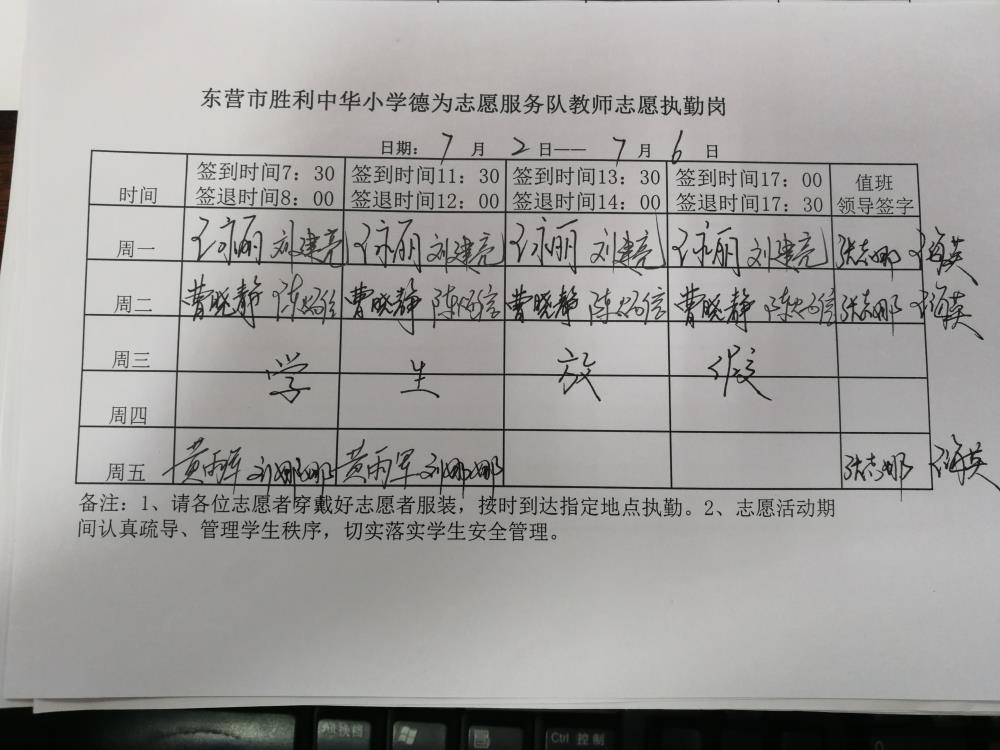 东营市胜利中华小学德为志愿服务队教师志愿执勤岗
日期：7月2日——7月6日
时间 签到时间7：30 签到时间11：30 签到时间13：30 签到时间17：00 值班
签退时间8：00 签退时间12：00 签退时间14：00 签退时间17：30 领导签字
周一 刘建亮 刘建亮 刘建亮 刘建亮 张志娜
周二 曹晓静 曹晓静 曹晓静 曹晓静 张志娜
周三 学生放假
周四
周五 黄雨军 刘娜娜 黄雨军 刘娜娜 张志娜
备注：1、请各位志愿者穿戴好志愿者服装，按时到达指定地点执勤。2、志愿活动期
间认真疏导、管理学生秩序，切实落实学生安全管理。
Ctrl 控制